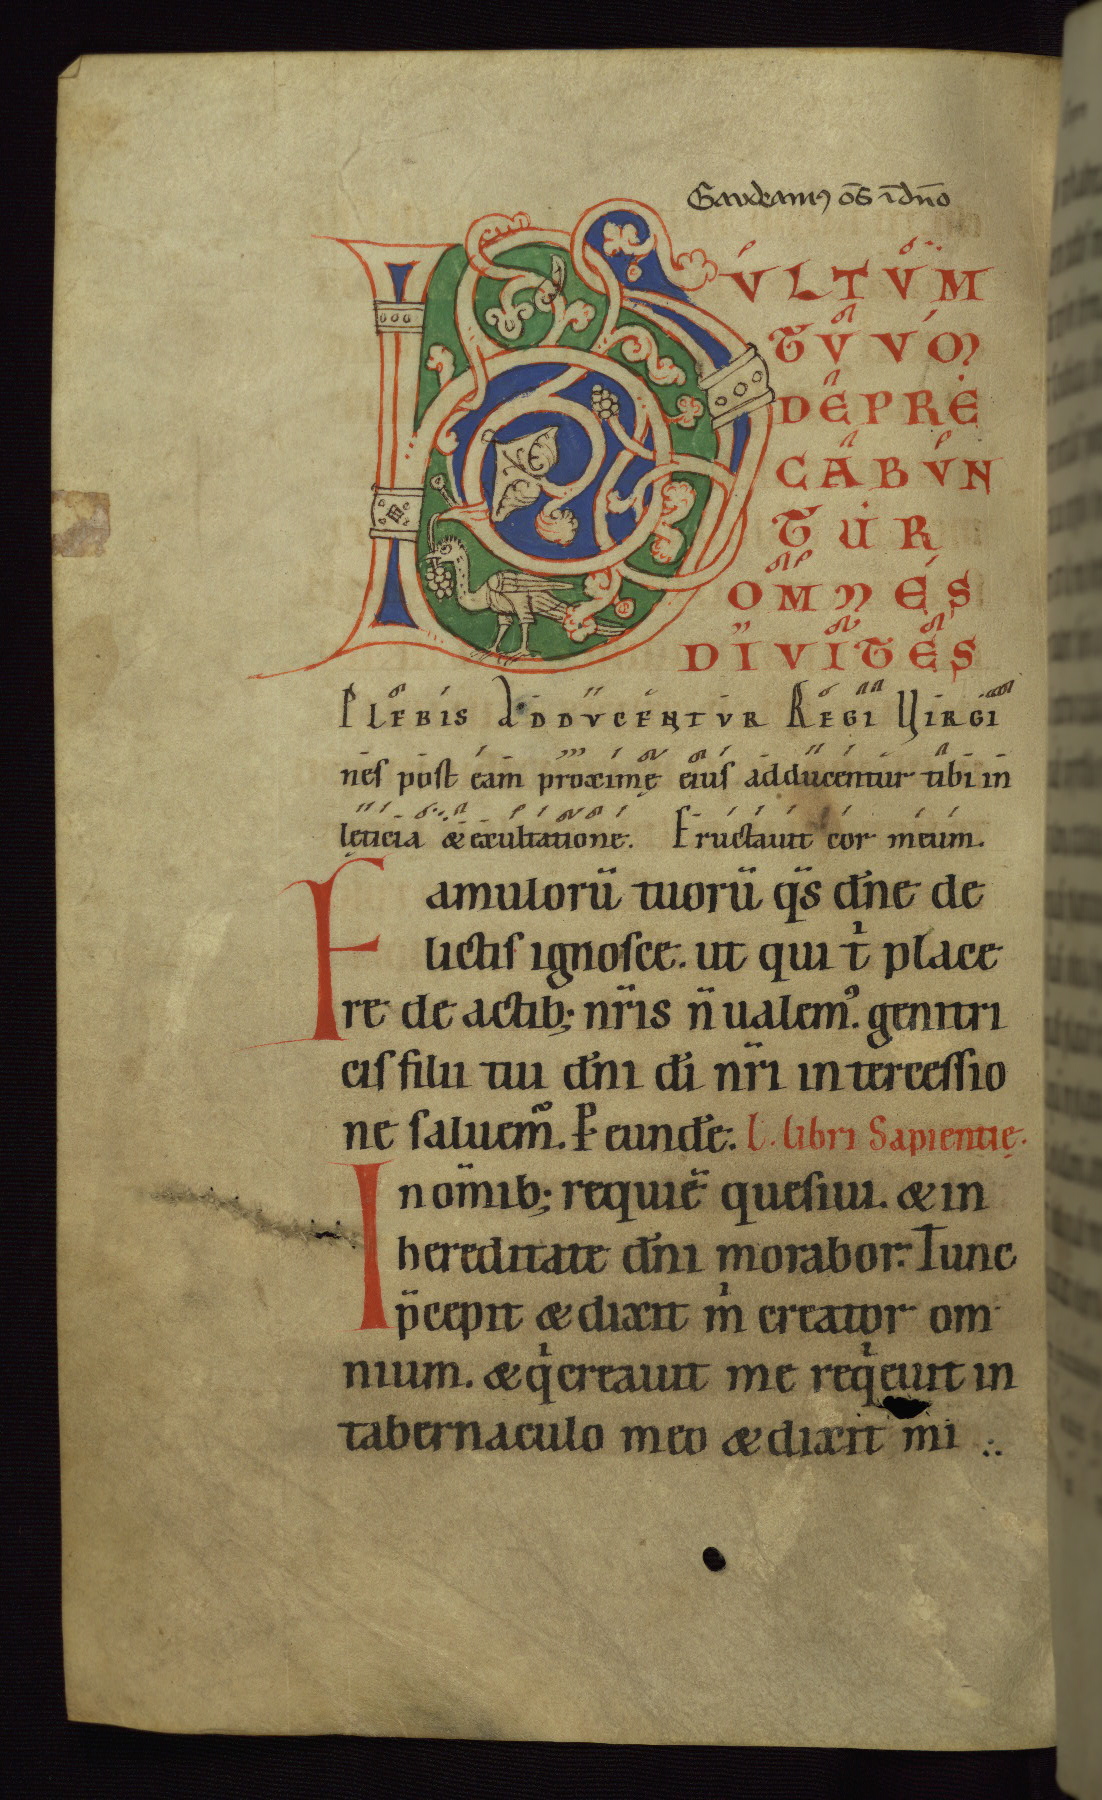 Gaudeamus om̄s ī dn̄o
VULTUM
TUUM
DEPRE
CABUN
TUR
OMNES
DIVITES
PLEBIS ADDUCENTUR REGI VIRGI
nes post eam proximę eius adducentur tibi in
lęticia & exultatione. Eructauit cor meum.
Famulorū tuorū qs̄ dn̄e de
lictis ignosce. ut qui t̄ place
re de actib; nr̄is n̄ ualem᾽. genitri
cis filii tui dn̄i di̅ nr̄i intercessio
ne saluem̅᾽. P eunde̅. L. libri Sapientię.
In om̄ib; requiē quesiui. & in
hereditate dn̄i morabor. Tunc
p̄cepit & dixit m̄ creator om
nium. & qͥ creauit me reqͥeuit in
tabernaculo meo & dixit mi